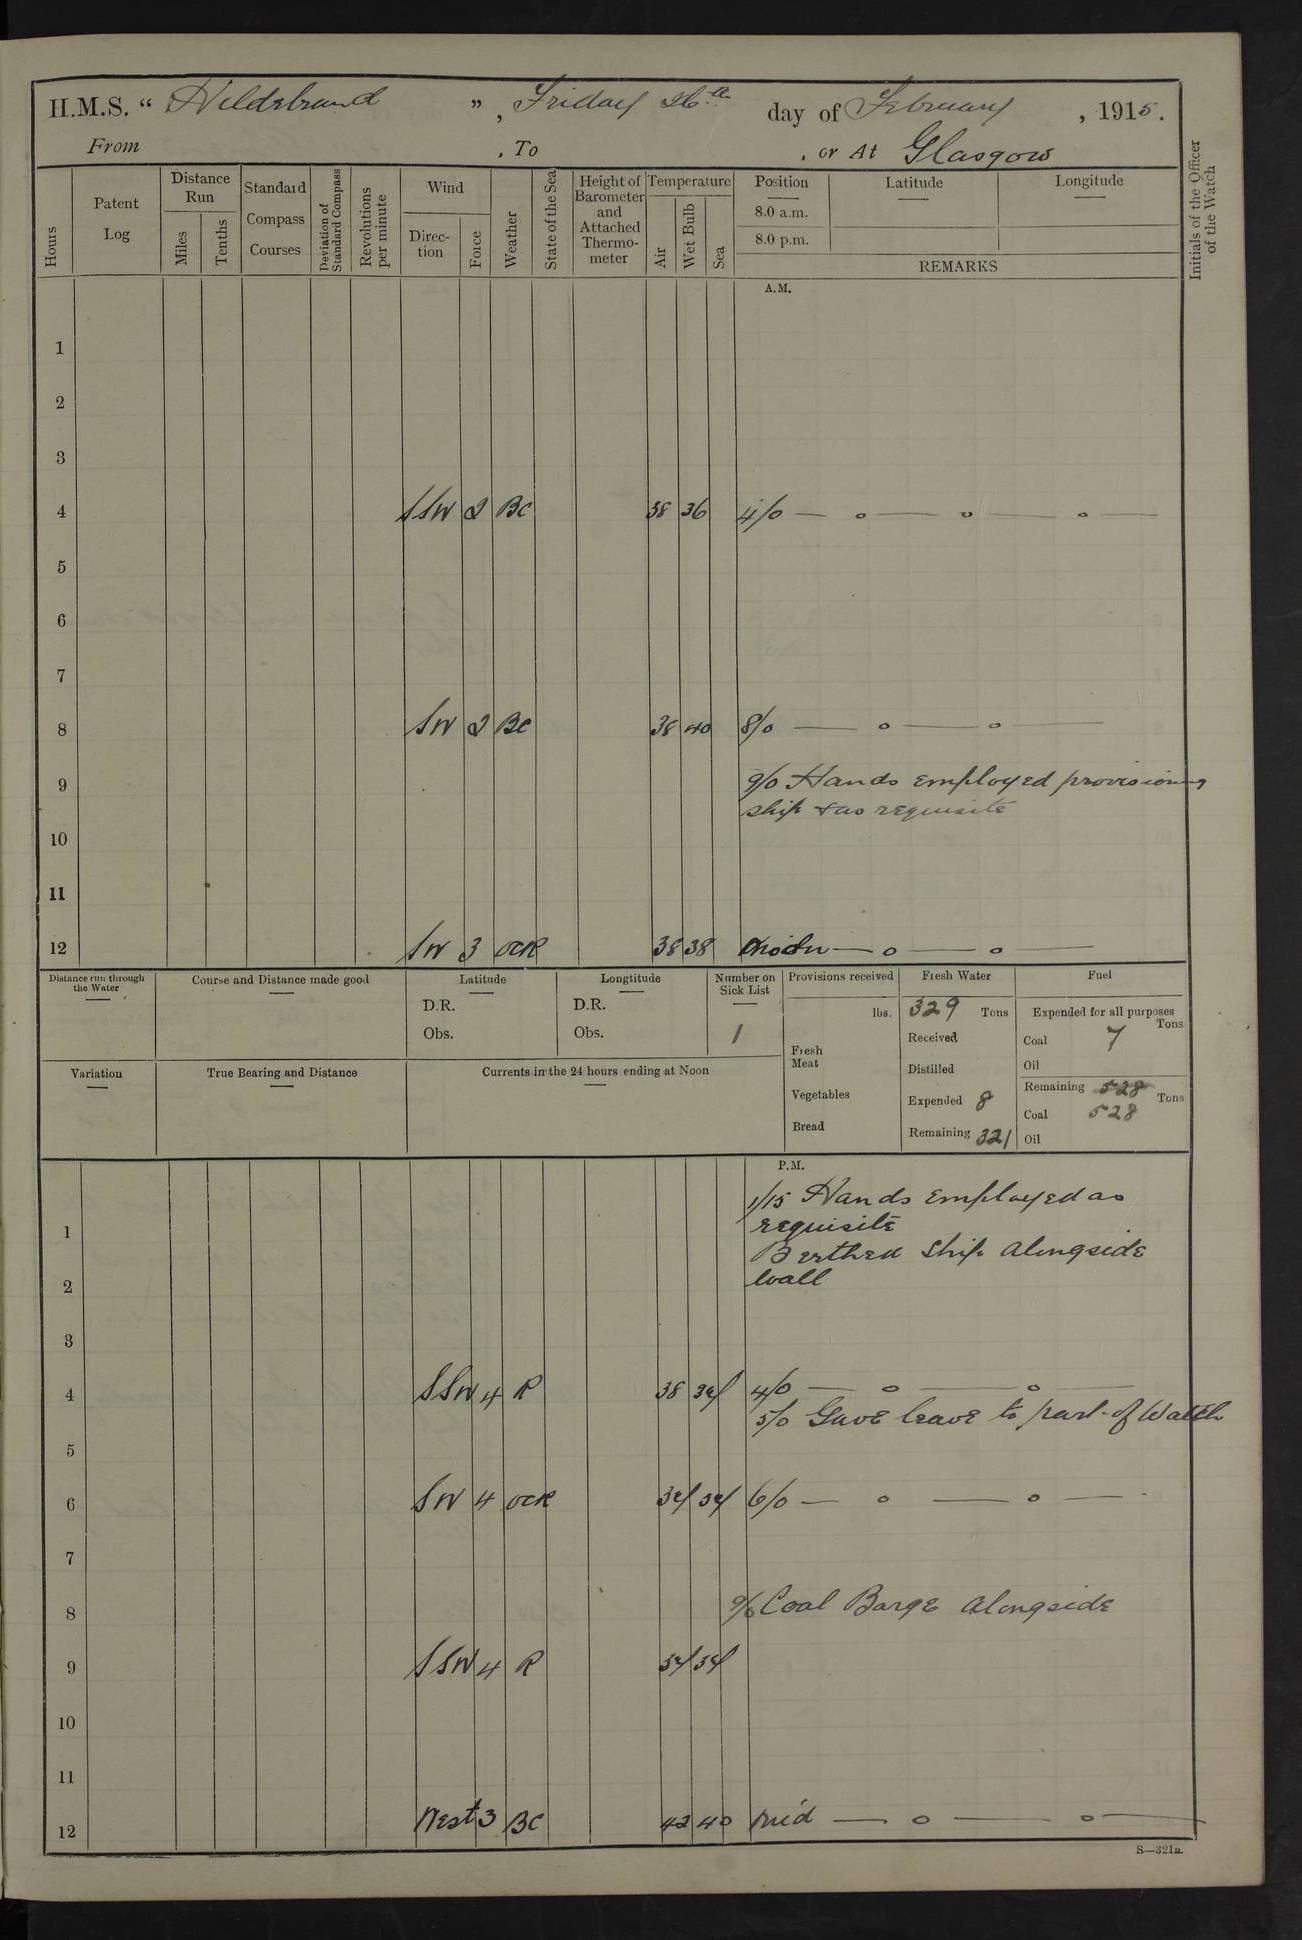 H.M.S. " Hildebrand ", Friday 26th day of February, 1915.
From , To , or At Glasgow
Hours
Patent Log
Distance Run
Miles
Tenths
Standard Compass Courses
Deviation of Standard Compass
Revolutions per minute
Wind
Direction
Force
Weather
State of the Sea
Height of Barometer and Attached Thermometer
Temperature
Air
Wet Bulb
Sea
Position
8.0 a.m.
8.0 p.m.
Latitude
Longitude
REMARKS
Initials of the Officer of the Watch
A.M.
1
2
3
4 SSW 2 BC 38 36 4/0 — o — o — o —
5
6
7
8 SW 2 BC 38 40 8/0 — o — o —
9 9/0 Hands employed provisioning
ship & as requisite
10
11
12 SW 3 OCR 38 38 — o — o —
Distance run through the Water
Course and Distance made good
Latitude
D.R.
Obs.
Longtitude
D.R.
Obs.
Number on Sick List
1
Provisions received
lbs.
Fresh Meat
Vegetables
Bread
Fresh Water
329 Tons
Received
Distilled
Expended 8
Remaining 321
Fuel
Expended for all purposes
Tons
Coal 7
Oil
Remaining 528
Tons
Coal 528
Oil
Variation
True Bearing and Distance
Currents in the 24 hours ending at Noon
P.M.
1/15 Hands employed as
1 requisite
Berthed ship alongside
2 wall
3
4 SSW 4 R 38 4/0 — o — o —
5/0 Gave leave to part of Watch
5
6 SW 4 OCR 6/0 — o — o —
7
8 Coal Barge alongside
9 SSW 4 R
10
11
12 West 3 BC 42 40 Mid — o — o —
S—321a.